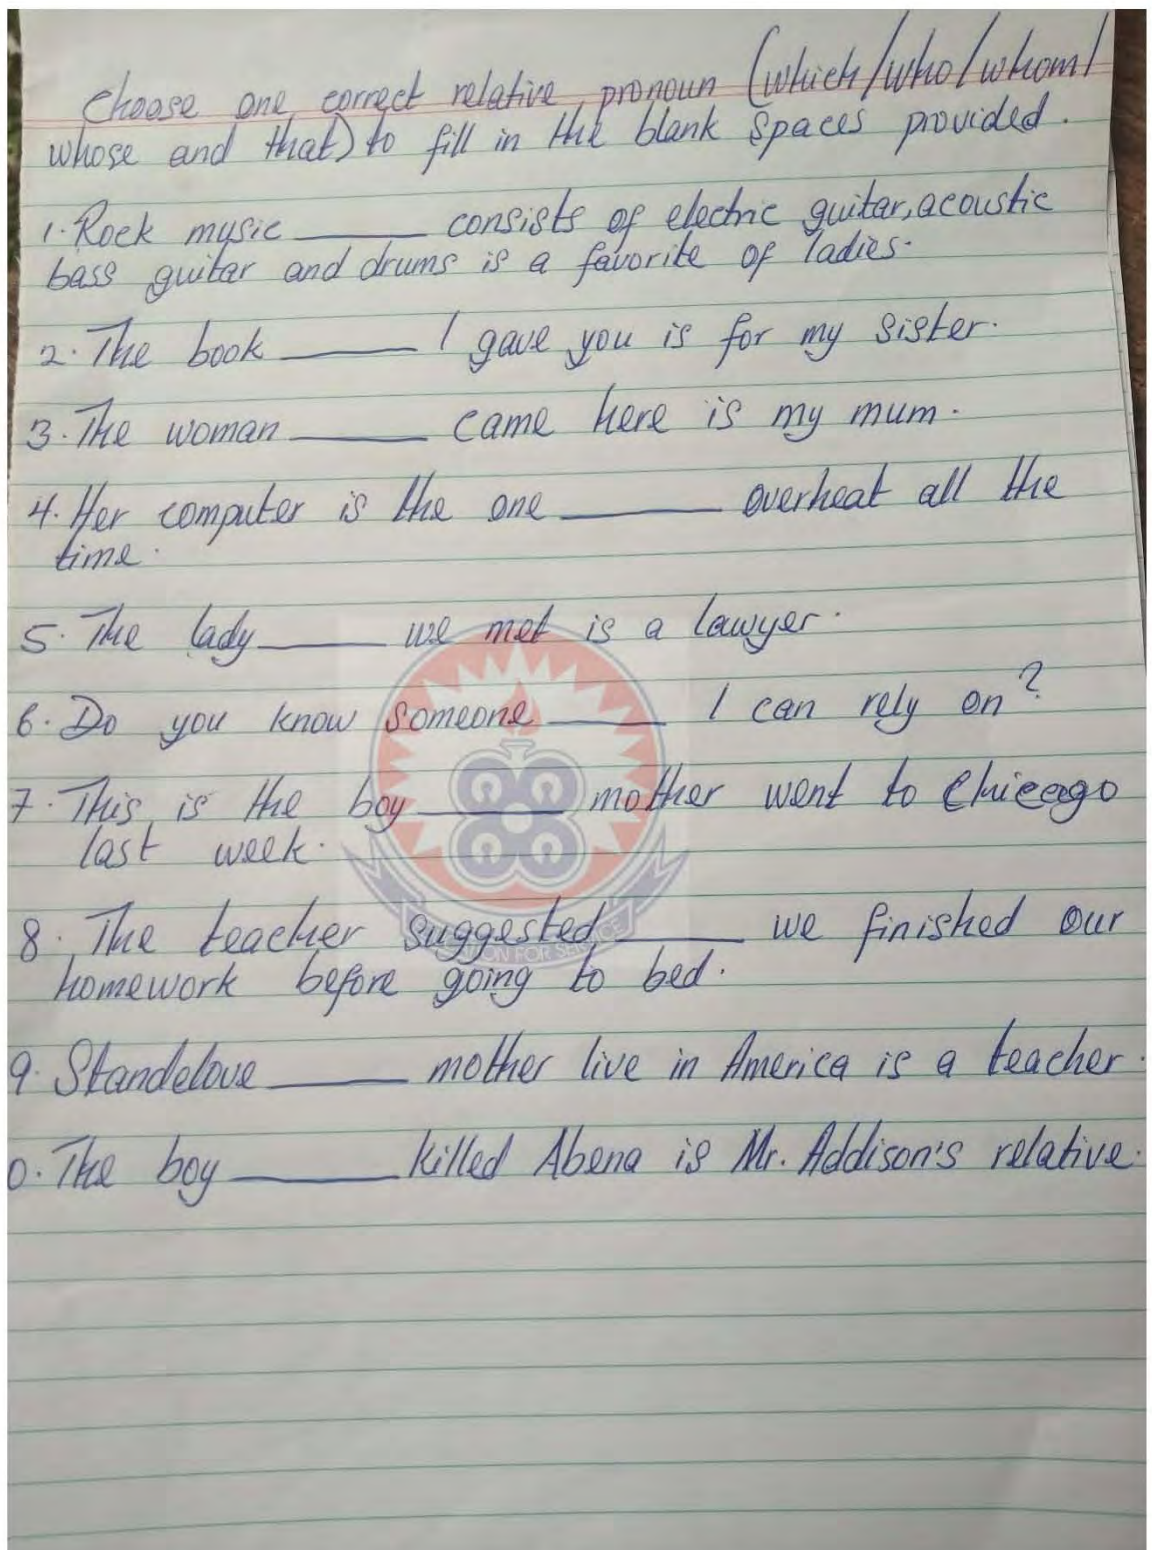 Choose one correct relative pronoun (which/who/whom/
whose and that) to fill in the blank spaces provided.
1. Rock music ______ consists of electric guitar, acoustic
bass guitar and drums is a favorite of ladies.
2. The book ______ I gave you is for my sister.
3. The woman ______ came here is my mum.
4. Her computer is the one ______ overheat all the
time.
5. The lady ______ we met is a lawyer.
6. Do you know someone ______ I can rely on?
7. This is the boy ______ mother went to Chicago
last week.
8. The teacher suggested ______ we finished our
homework before going to bed.
9. Standelove ______ mother live in America is a teacher.
0. The boy ______ killed Abena is Mr. Addison's relative.